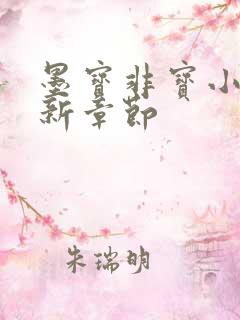 墨寳非寳小
新章節
朱瑞明